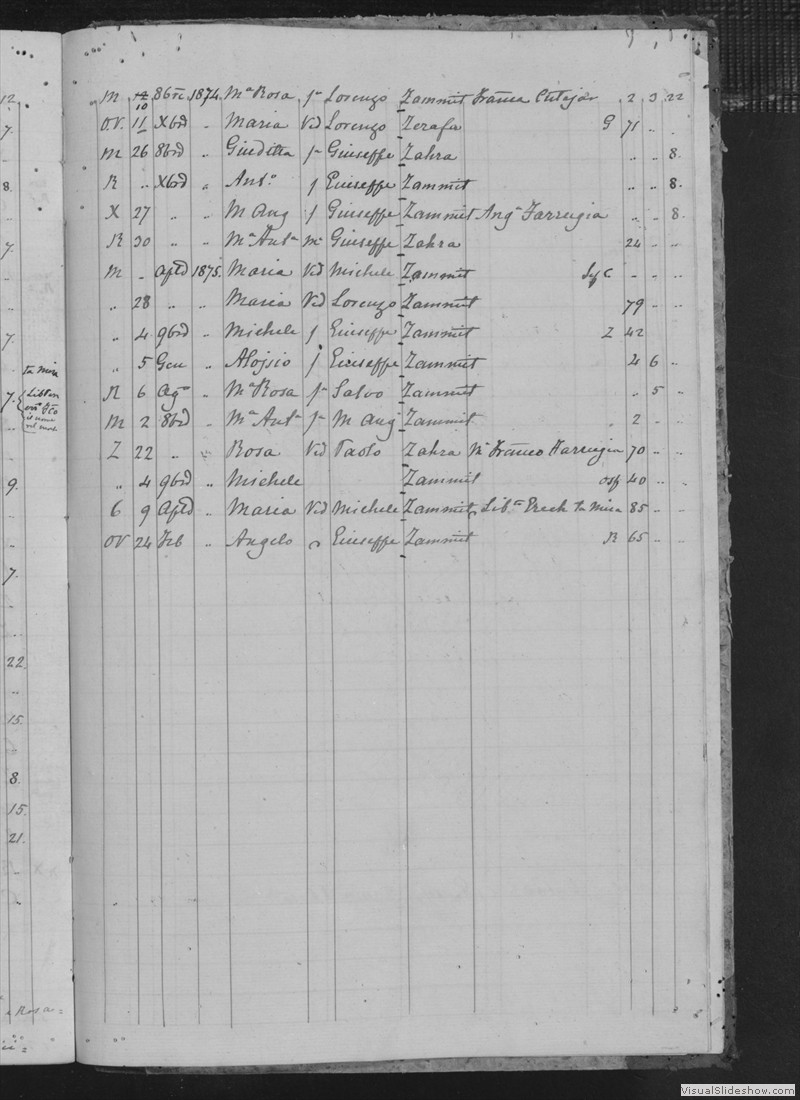 12.
7.
8.
7.
7.
ta mira
7.
9.
7.
22.
15.
8.
15.
21.
Rosa =
M 12 8bre 1874. Ma Rosa fa Lorenzo Zammit Franca Cutajar 2 3 22
10
O.V. 11 Xbre " Maria Vid Lorenzo Zerafa G 71 " "
M 26 8bre " Giuditta fa Giuseppe Zahra " " 8.
R " Xbre " Anto f Giuseppe Zammit " " 8.
X 27 " " M Ang f Giuseppe Zammit Anga Farrugia " " 8.
R 30 " " Ma Anta Giuseppe Zahra 24 " "
M " 1875. Maria Vid Michele Zammit " " "
" 28 " " Maria Vid Lorenzo Zammit 79 " "
" 4 9bre " Michele f Giuseppe Zammit Z 42
" 5 Gen " Aloisio f Giuseppe Zammit 4 6 "
R 6 Ago " Ma Rosa fa Salvo Zammit " 5 "
M 2 8bre " Ma Anta fa M Ang Zammit " 2 " "
Z 22 " " Rosa Vid Paolo Zahra Franco Farrugia 70 " "
" 4 9bre " Michele Zammit osp 40 " "
6 9 " Maria Vid Michele Zammit ta Mira 85 " "
OV 24 Feb " Angelo Giuseppe Zammit R 65 " "
VisualSlideshow.com